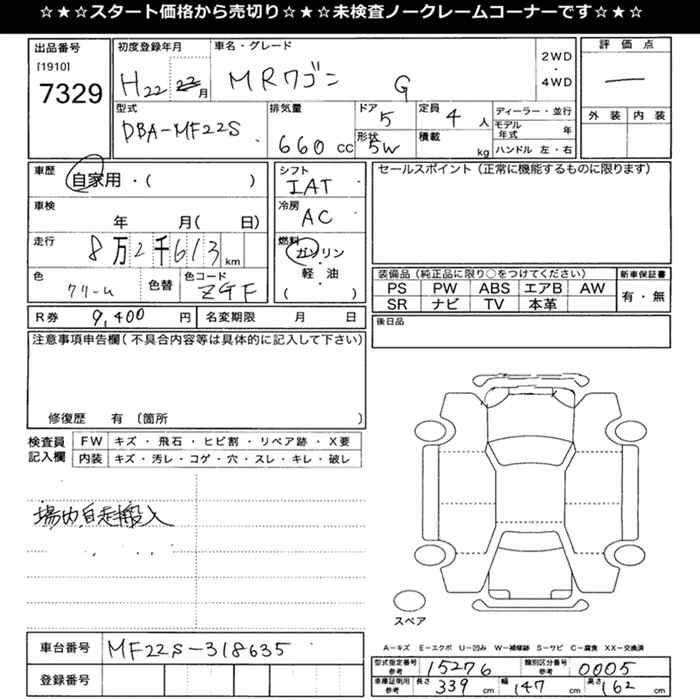 ☆★☆★スタート価格から売切り☆★☆★未検査ノークレームコーナーです☆★☆★
出品番号
[1910]
7329
初度登録年月
H22 月
車名・グレード
MRワゴン G
2WD
・
4WD
評価点
―
外装 内装
型式
DBA-MF22S
排気量
660 CC
ドア
5
形状
5W
定員
4 人
積載
kg
ディーラー・並行
モデル年式 年
ハンドル 左・右
車歴
自家用・( )
車検
年 月( 日)
走行
8万2千613 km
色
クリーム
色替
色コード
Z9F
シフト
IAT
冷房
AC
燃料
ガソリン
・
軽・油
( )
セールスポイント(正常に機能するものに限ります)
装備品(純正品に限り○をつけてください)
PS PW ABS エアB AW
SR ナビ TV 本革
新車保証書
有・無
R券 9,400 円
名変期限 月 日
後日品
注意事項申告欄(不具合内容等は具体的に記入して下さい)
修復歴 有〔箇所 〕
検査員
記入欄
FW キズ・飛石・ヒビ割・リペア跡・X要
内装 キズ・汚レ・コゲ・穴・スレ・キレ・破レ
場内自走搬入
スペア
車台番号 MF22S-318635
登録番号
A-キズ E-エクボ U-凹み W-補修跡 S-サビ C-腐食 XX-交換済
型式指定番号
参考
15276
類別区分番号
参考
0005
車庫証明用
参考
長さ 339 cm 幅 147 cm 高さ 162 cm